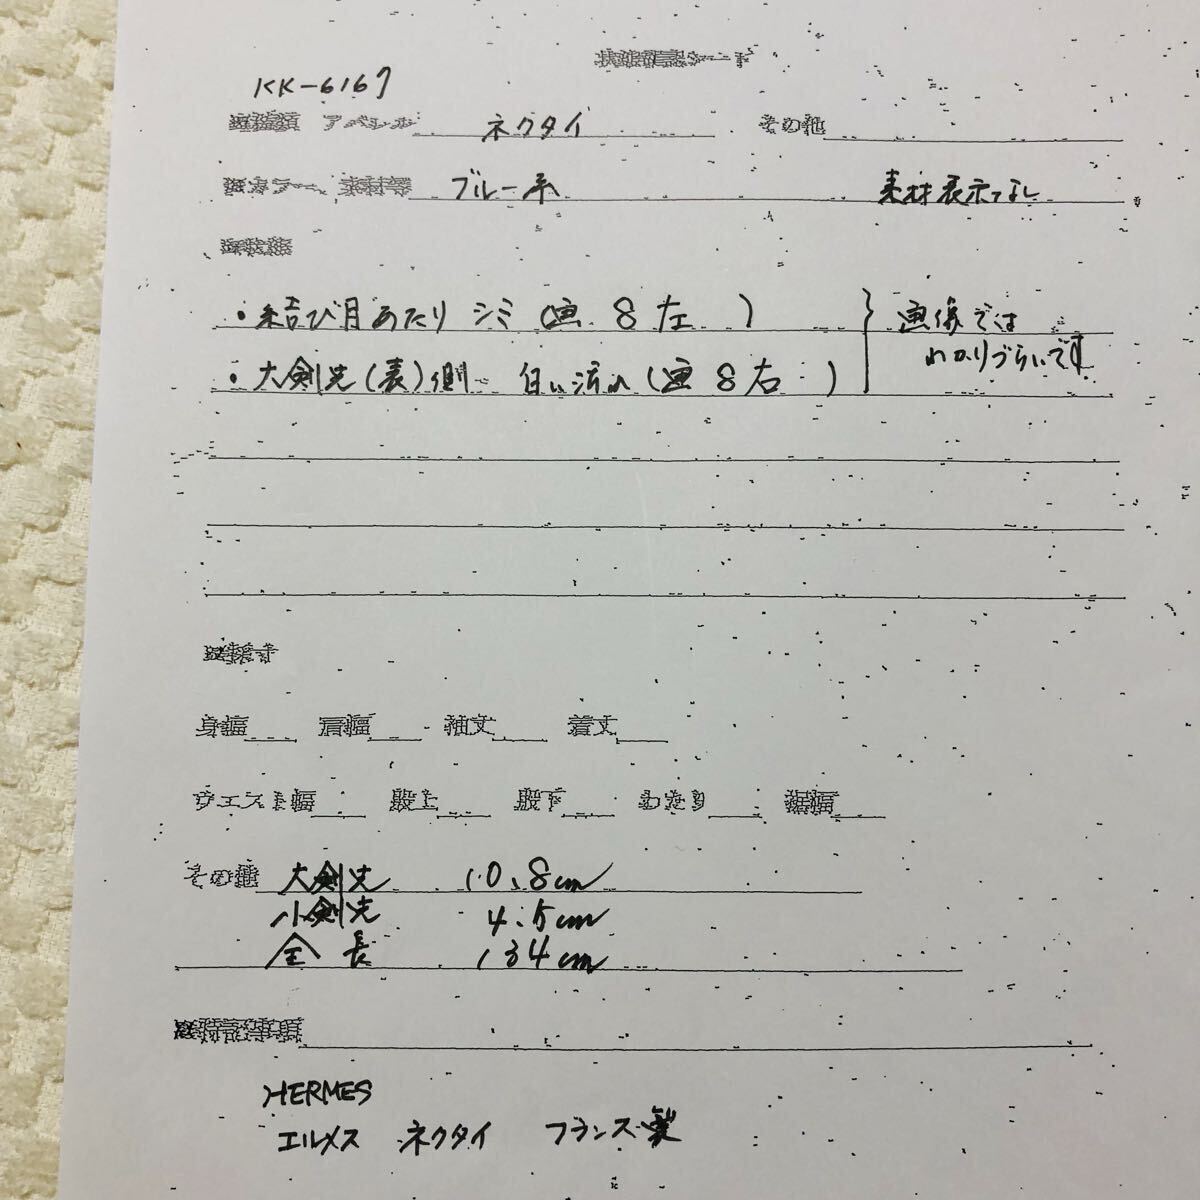 KK-6167
アパレル ネクタイ その他
カラー、素材等 ブルー系 素材表示なし
・結び目あたり シミ (画 8 左 ) 画像では
わかりづらいです
・大剣先(表)側 白い汚れ(画 8 右 )
身幅 肩幅 袖丈 着丈
ウエスト幅 股上 股下 わたり 裾幅
その他 大剣先 10.8cm
小剣先 4.5cm
全長 134cm
特記事項
HERMES
エルメス ネクタイ フランス製